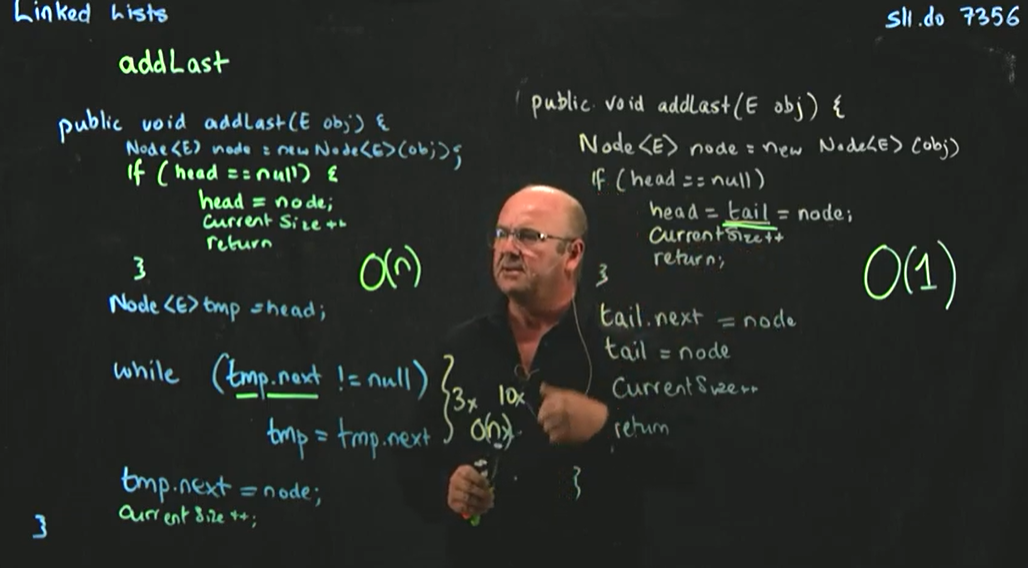 Linked Lists
sli.do 7356
addLast
public void addLast(E obj) {
Node<E> node = new Node<E>(obj);
If (head == null) {
head = node;
current Size ++
return
}
O(n)
Node<E> tmp = head;
while (tmp.next != null)
tmp = tmp.next
} 3x 10x
O(n)
tmp.next = node;
current Size ++;
}
public void addLast(E obj) {
Node<E> node = new Node<E>(obj)
If (head == null)
head = tail = node;
currentSize++
return;
}
O(1)
tail.next = node
tail = node
currentSize++
return
}